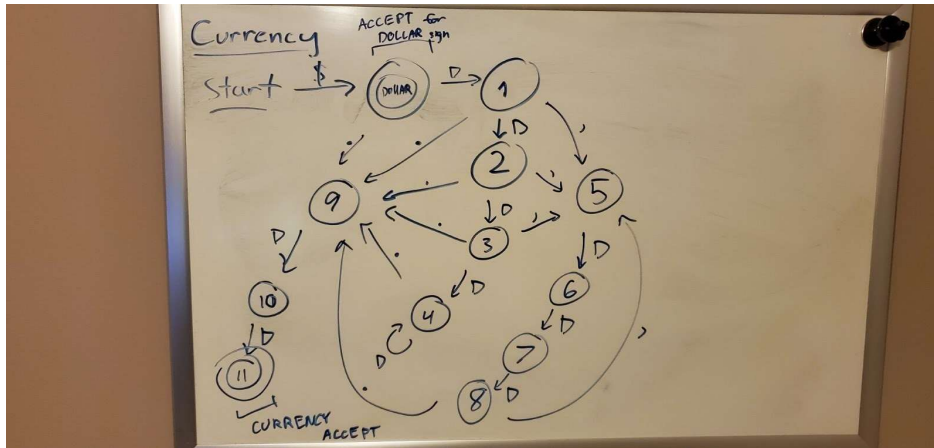 Currency
ACCEPT for
DOLLAR sign
Start $ DOLLAR D 1
. . D ,
9 . 2 , 5
. D
3 ,
D . D D
10 4 6
D D D
11 7
. 8 D ,
CURRENCY
ACCEPT